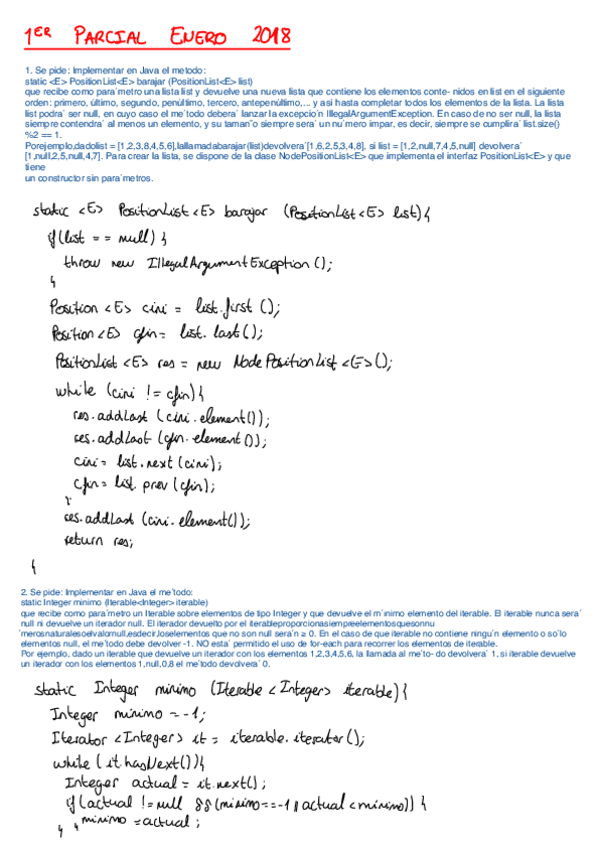 1ER PARCIAL ENERO 2018
1. Se pide: Implementar en Java el metodo:
static <E> PositionList<E> barajar (PositionList<E> list)
que recibe como para´metro una lista list y devuelve una nueva lista que contiene los elementos conte- nidos en list en el siguiente
orden: primero, último, segundo, penúltimo, tercero, antepenúltimo,... y asi hasta completar todos los elementos de la lista. La lista
list podra´ ser null, en cuyo caso el me´todo debera´ lanzar la excepcio´n IllegalArgumentException. En caso de no ser null, la lista
siempre contendra´ al menos un elemento, y su taman˜o siempre sera´ un nu´mero impar, es decir, siempre se cumplira´ list.size()
%2 == 1.
Porejemplo,dadolist = [1,2,3,8,4,5,6],lallamadabarajar(list)devolvera´[1,6,2,5,3,4,8], si list = [1,2,null,7,4,5,null] devolvera´
[1,null,2,5,null,4,7]. Para crear la lista, se dispone de la clase NodePositionList<E> que implementa el interfaz PositionList<E> y que
tiene
un constructor sin para´metros.
static <E> PositionList<E> barajar (PositionList<E> list){
if(list == null) {
throw new IllegalArgumentException();
}
Position<E> cini = list.first();
Position<E> cfin = list.last();
PositionList<E> res = new NodePositionList<E>();
while (cini != cfin){
res.addLast (cini.element());
res.addLast (cfin.element());
cini = list.next(cini);
cfin = list.prev(cfin);
}
res.addLast (cini.element());
return res;
}
2. Se pide: Implementar en Java el me´todo:
static Integer minimo (Iterable<Integer> iterable)
que recibe como para´metro un Iterable sobre elementos de tipo Integer y que devuelve el m´ınimo elemento del iterable. El iterable nunca sera´
null ni devuelve un iterador null. El iterador devuelto por el iterableproporcionasiempreelementosquesonnu
´merosnaturalesoelvalornull,esdecir,loselementos que no son null sera´n ≥ 0. En el caso de que iterable no contiene ningu´n elemento o so´lo
elementos null, el me´todo debe devolver -1. NO esta´ permitido el uso de for-each para recorrer los elementos de iterable.
Por ejemplo, dado un iterable que devuelve un iterador con los elementos 1,2,3,4,5,6, la llamada al me´to- do devolvera´ 1, si iterable devuelve
un iterador con los elementos 1,null,0,8 el me´todo devolvera´ 0.
static Integer minimo (Iterable<Integer> iterable){
Integer minimo = -1;
Iterator<Integer> it = iterable.iterator();
while (it.hasNext()){
Integer actual = it.next();
if(actual != null && (minimo == -1 || actual < minimo)) {
minimo = actual;
} }